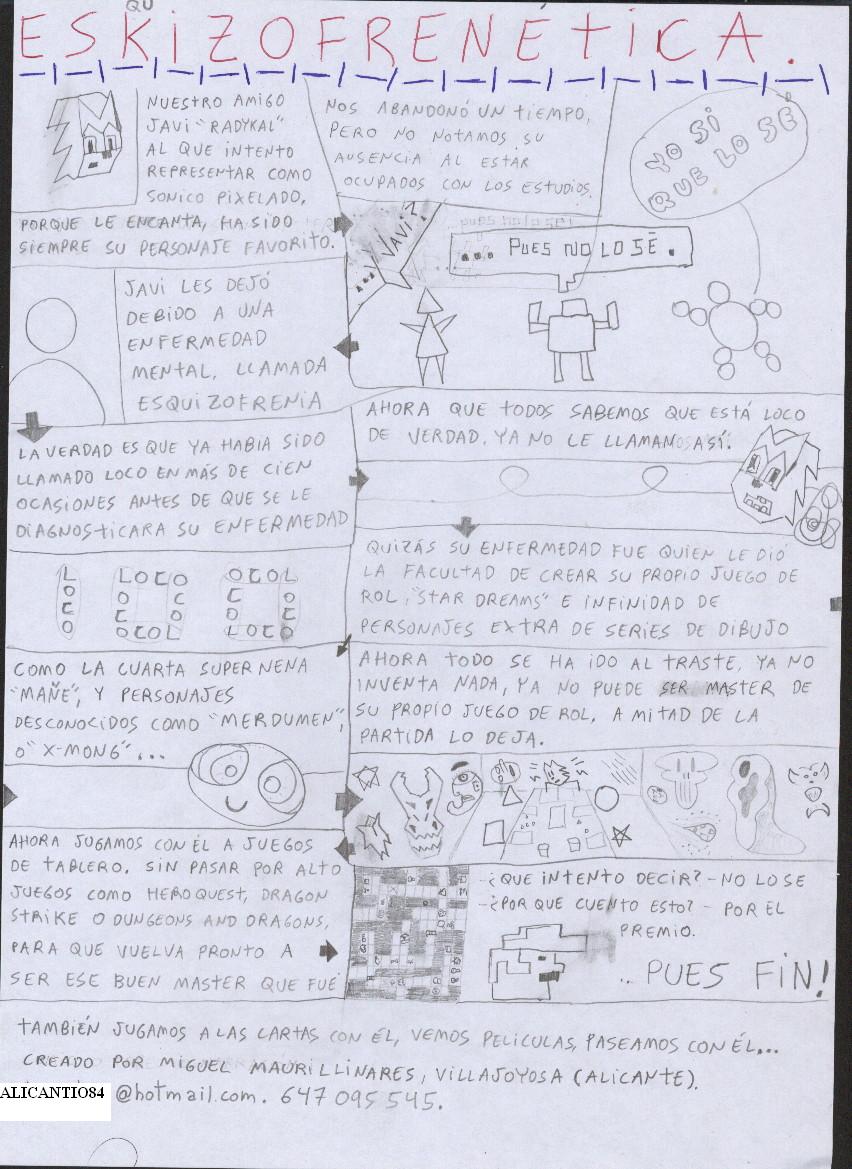 QU
ESKIZOFRENÉTICA.
NUESTRO AMIGO
JAVI "RADYKAL"
AL QUE INTENTO
REPRESENTAR COMO
SONICO PIXELADO,
PORQUE LE ENCANTA, HA SIDO
SIEMPRE SU PERSONAJE FAVORITO.
NOS ABANDONÓ UN TIEMPO,
PERO NO NOTAMOS SU
AUSENCIA AL ESTAR
OCUPADOS CON LOS ESTUDIOS.
YO SI
QUE LO SÉ
... JAVI?
... PUES NO LO SÉ.
JAVI LES DEJÓ
DEBIDO A UNA
ENFERMEDAD
MENTAL, LLAMADA
ESQUIZOFRENIA
LA VERDAD ES QUE YA HABIA SIDO
LLAMADO LOCO EN MÁS DE CIEN
OCASIONES ANTES DE QUE SE LE
DIAGNOSTICARA SU ENFERMEDAD
AHORA QUE TODOS SABEMOS QUE ESTÁ LOCO
DE VERDAD, YA NO LE LLAMAMOS ASÍ.
L LOCO OCOL
O O C C O
C C O O C
O OCOL LOCO
QUIZÁS SU ENFERMEDAD FUE QUIEN LE DIÓ
LA FACULTAD DE CREAR SU PROPIO JUEGO DE
ROL, "STAR DREAMS" E INFINIDAD DE
PERSONAJES EXTRA DE SERIES DE DIBUJO
COMO LA CUARTA SUPER NENA
"MAÑE", Y PERSONAJES
DESCONOCIDOS COMO "MERDUMEN",
O "X-MONG"...
AHORA TODO SE HA IDO AL TRASTE, YA NO
INVENTA NADA, YA NO PUEDE SER MASTER DE
SU PROPIO JUEGO DE ROL, A MITAD DE LA
PARTIDA LO DEJA.
AHORA JUGAMOS CON ÉL A JUEGOS
DE TABLERO, SIN PASAR POR ALTO
JUEGOS COMO HEROQUEST, DRAGON
STRIKE O DUNGEONS AND DRAGONS,
PARA QUE VUELVA PRONTO A
SER ESE BUEN MASTER QUE FUÉ
-¿QUE INTENTO DECIR? - NO LO SE
-¿POR QUE CUENTO ESTO? - POR EL
PREMIO.
... PUES FIN!
TAMBIÉN JUGAMOS A LAS CARTAS CON ÉL, VEMOS PELICULAS, PASEAMOS CON ÉL...
CREADO POR MIGUEL MAURI LLINARES, VILLAJOYOSA (ALICANTE).
ALICANTIO84 @hotmail.com. 647 095 545.